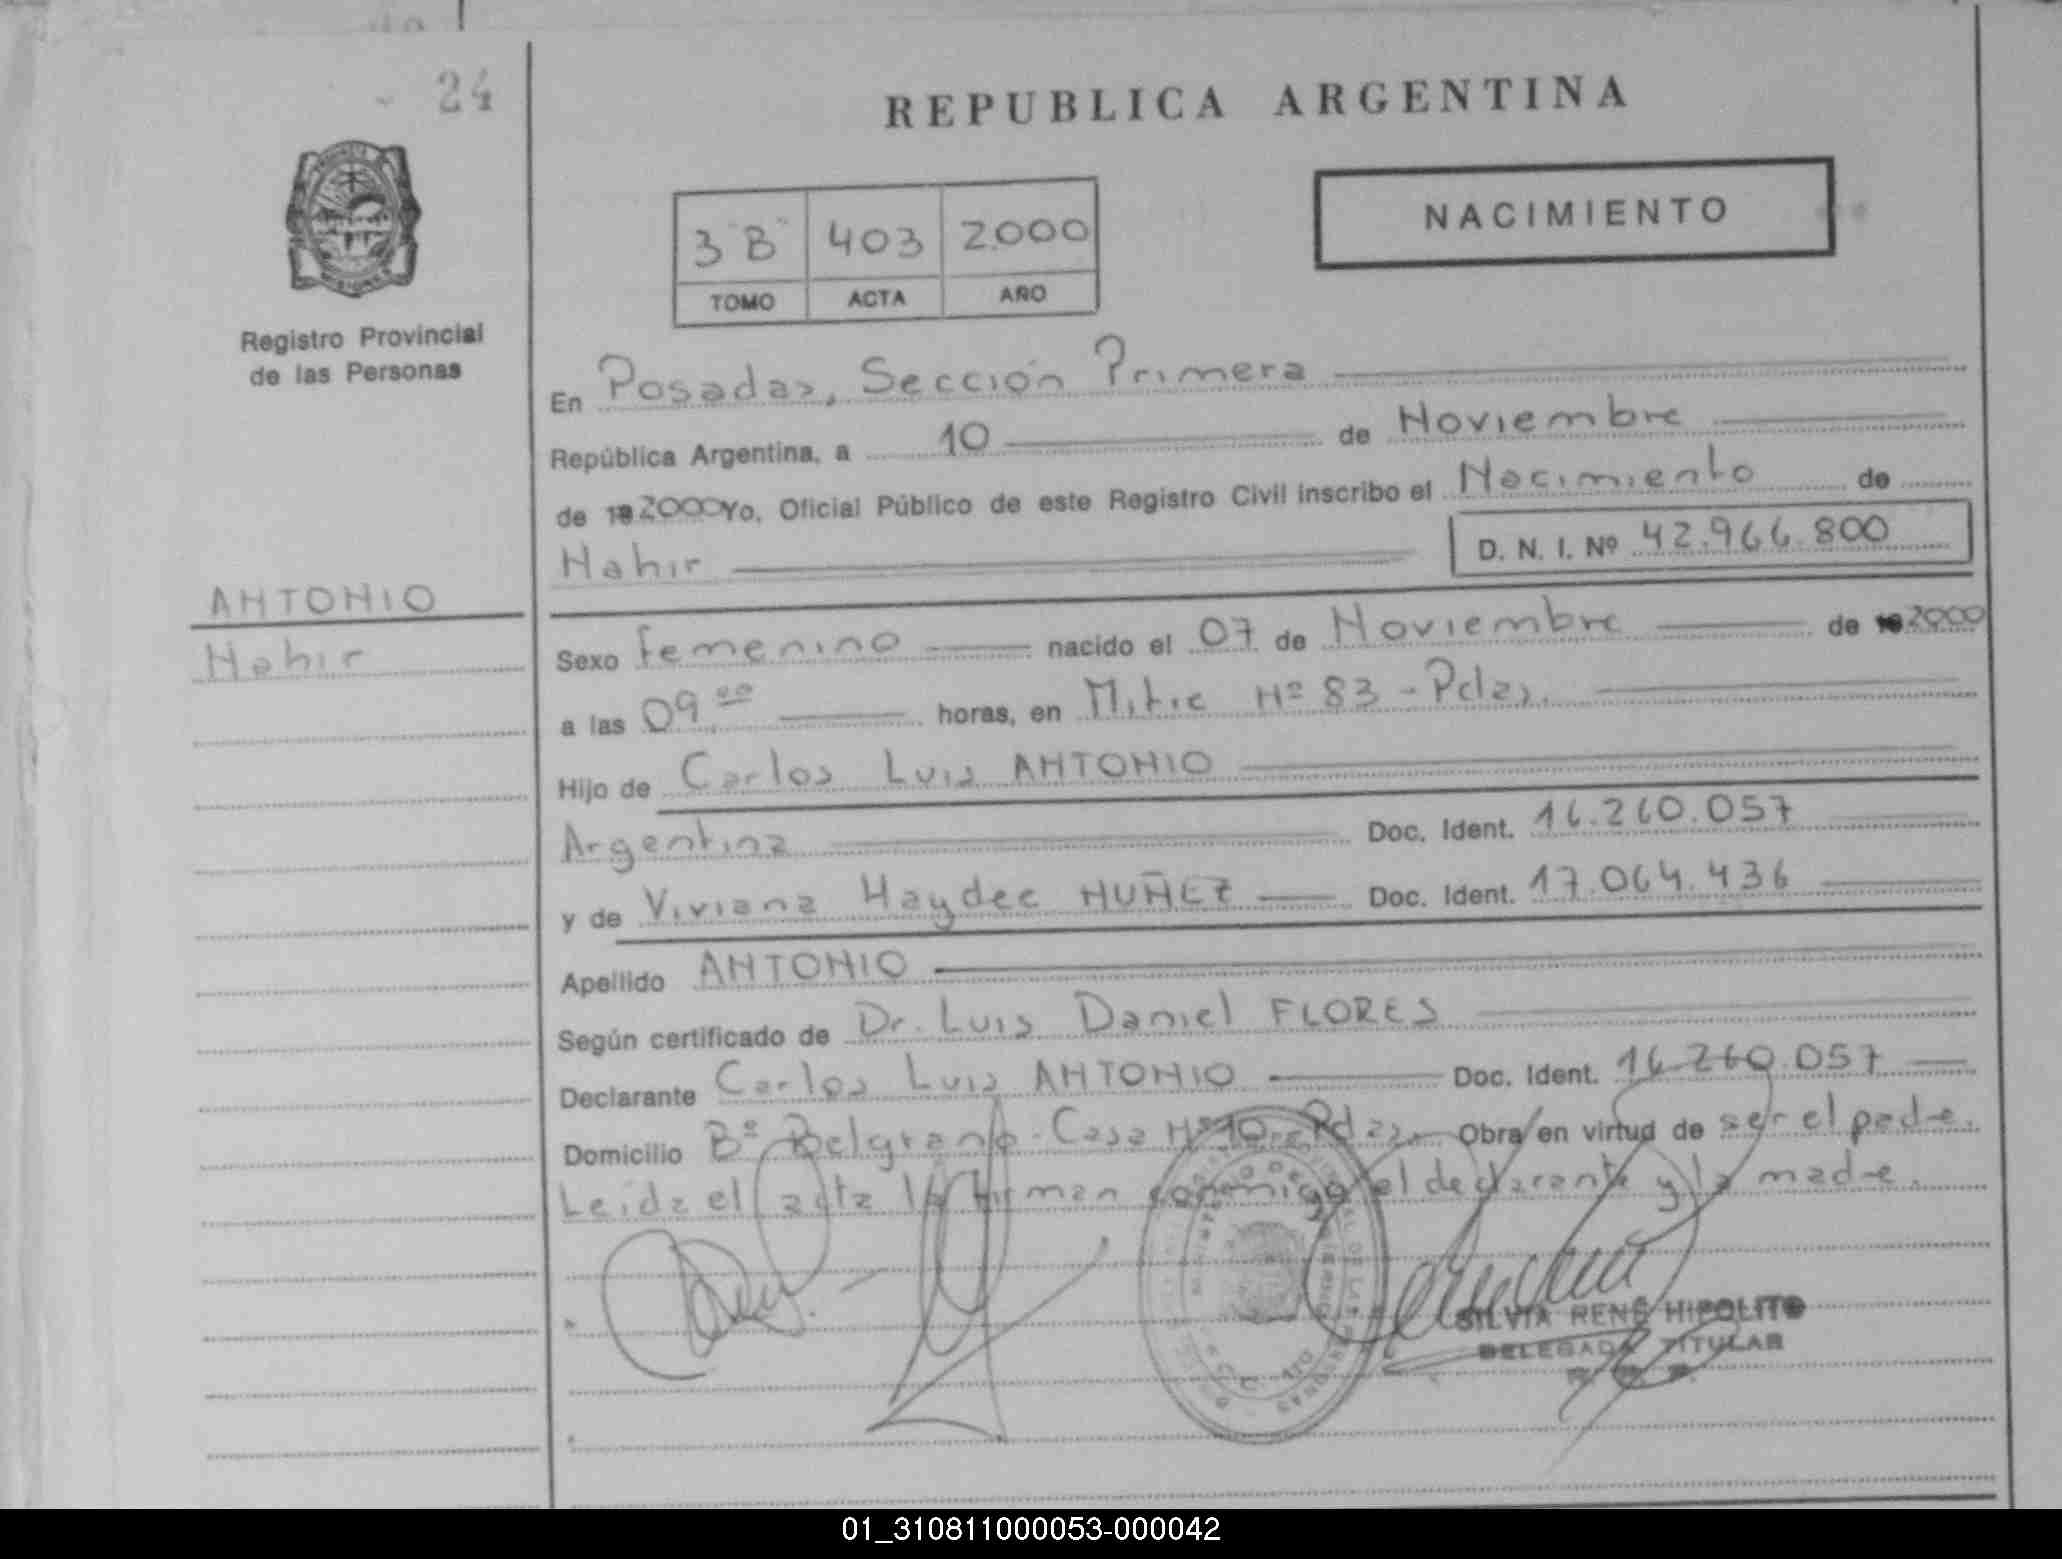 24
REPUBLICA ARGENTINA
NACIMIENTO
3 "B" 403 2.000
TOMO ACTA AÑO
Registro Provincial
de las Personas
En Posadas, Sección Primera
República Argentina, a 10 de Noviembre
de 19 2000 Yo, Oficial Público de este Registro Civil inscribo el Nacimiento de
Nahir D. N. I. Nº 42.966.800
ANTONIO
Nahir
Sexo femenino nacido el 07 de Noviembre de 19 2000
a las 09 00 horas, en Mitre Nº 83 - Pdas.
Hijo de Carlos Luis ANTONIO
Argentina Doc. Ident. 16.260.057
y de Viviana Haydee NUÑEZ Doc. Ident. 17.064.436
Apellido ANTONIO
Según certificado de Dr. Luis Daniel FLORES
Declarante Carlos Luis ANTONIO Doc. Ident. 16.260.057
Domicilio Bº Belgrano - Casa Nº 10 - Pdas. Obra en virtud de ser el padre.
Leída el acta la firman conmigo el declarante y la madre.
SILVIA RENÉ HIPOLITO
DELEGADA TITULAR
01_310811000053-000042